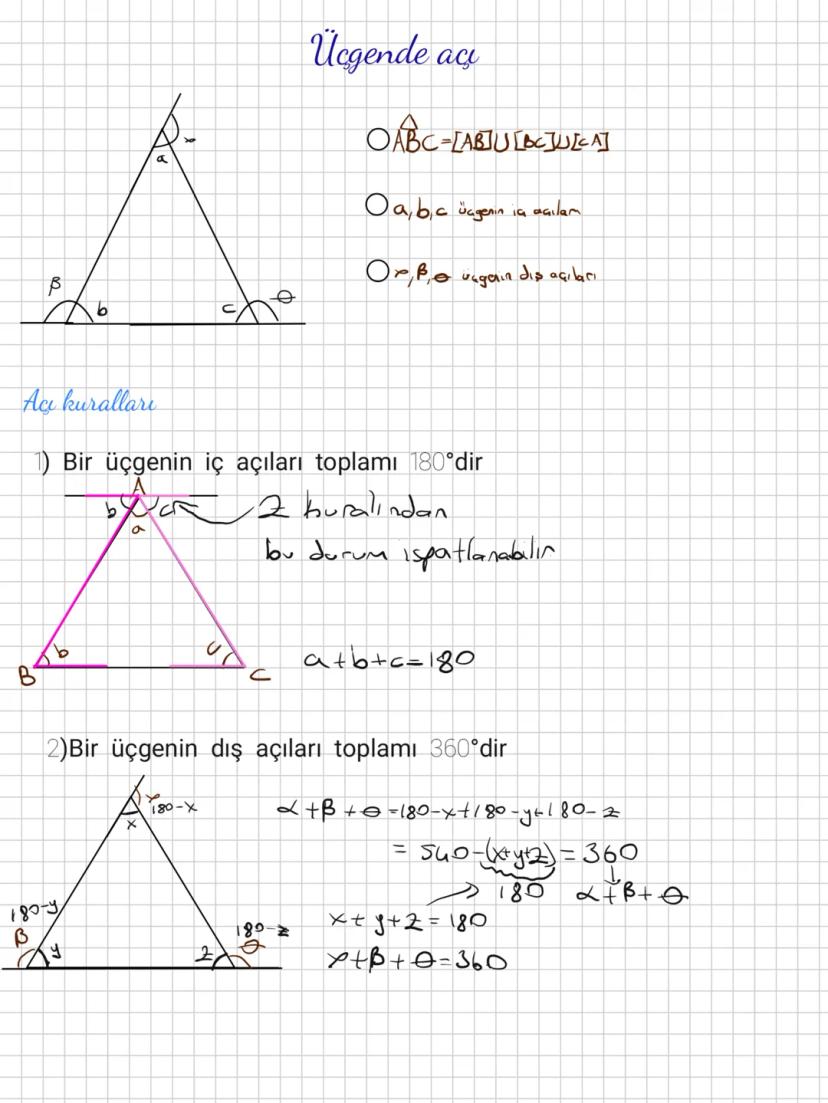 Üçgende açı
α
a
ABC=[AB]∪[BC]∪[CA]
a,b,c üçgenin iç açıları
α,β,θ üçgenin dış açıları
β
b
c
θ
Açı kuralları
1) Bir üçgenin iç açıları toplamı 180°dir
A
b
a
c
Z kuralından
bu durum ispatlanabilir
b
c
B
C
a+b+c=180
2)Bir üçgenin dış açıları toplamı 360°dir
α
180-x
x
α+β+θ=180-x+180-y+180-z
=540-(x+y+z)=360
180
α+β+θ
180-y
β
y
z
180-z
θ
x+y+z=180
α+β+θ=360